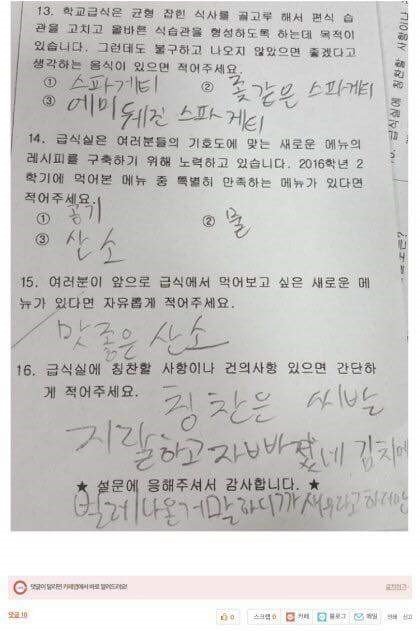 13. 학교급식은 균형 잡힌 식사를 골고루 해서 편식 습
관을 고치고 올바른 식습관을 형성하도록 하는데 목적이
있습니다. 그런데도 불구하고 나오지 않았으면 좋겠다고
생각하는 음식이 있으면 적어주세요.
① 스파게티 ② 좆같은 스파게티
③ 에미 뒤진 스파게티
14. 급식실은 여러분들의 기호도에 맞는 새로운 메뉴의
레시피를 구축하기 위해 노력하고 있습니다. 2016학년 2
학기에 먹어본 메뉴 중 특별히 만족하는 메뉴가 있다면
적어주세요.
① 공기 ② 물
③ 산소
15. 여러분이 앞으로 급식에서 먹어보고 싶은 새로운 메
뉴가 있다면 자유롭게 적어주세요.
맛좋은 산소
16. 급식실에 칭찬할 사항이나 건의사항 있으면 간단하
게 적어주세요.
칭찬은 씨발
지랄하고 자빠졌네 김치에
★ 설문에 응해주셔서 감사합니다. ★
벌레나온거 말하니까 새우라고 하더만
댓글이 달리면 카페앱에서 바로 알려드려요!
댓글 10 0 스크랩 0 카페 블로그 메일 인쇄 신고